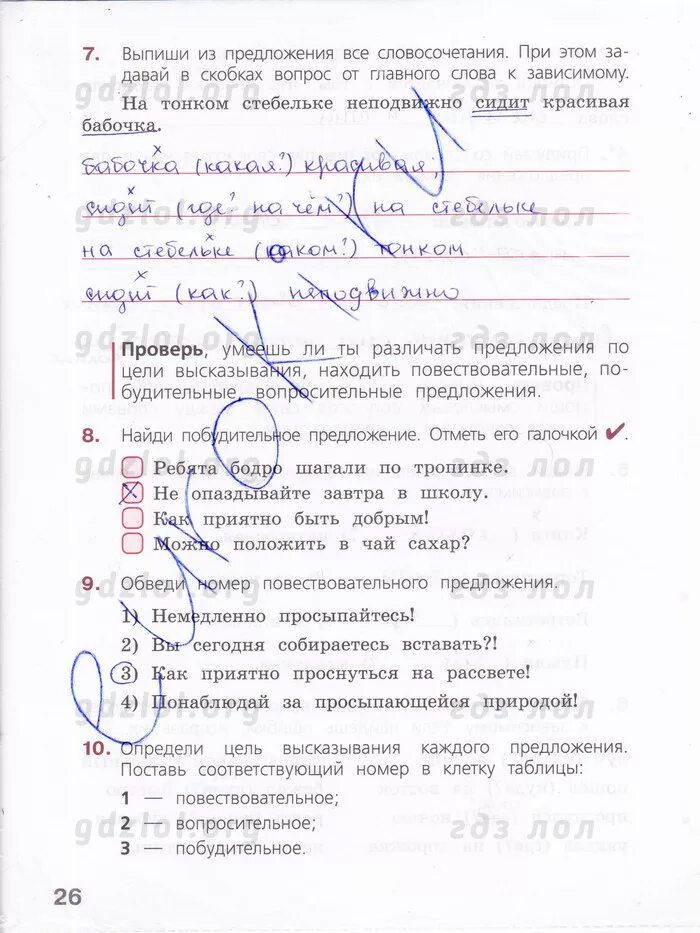 7. Выпиши из предложения все словосочетания. При этом за-
давай в скобках вопрос от главного слова к зависимому.
На тонком стебельке неподвижно сидит красивая
бабочка.
бабочка (какая?) красивая;
сидит (где? на чём?) на стебельке
на стебельке (каком?) тонком
сидит (как?) неподвижно
Проверь, умеешь ли ты различать предложения по
цели высказывания, находить повествовательные, по-
будительные, вопросительные предложения.
8. Найди побудительное предложение. Отметь его галочкой ✔.
Ребята бодро шагали по тропинке.
Не опаздывайте завтра в школу.
Как приятно быть добрым!
Можно положить в чай сахар?
9. Обведи номер повествовательного предложения.
1) Немедленно просыпайтесь!
2) Вы сегодня собираетесь вставать?!
3) Как приятно проснуться на рассвете!
4) Понаблюдай за просыпающейся природой!
10. Определи цель высказывания каждого предложения.
Поставь соответствующий номер в клетку таблицы:
1 — повествовательное;
2 — вопросительное;
3 — побудительное.
26
gdzlol.org гдз лол
gdzlol.org гдз лол
gdzlol.org гдз лол
gdzlol.org гдз лол
gdzlol.org гдз лол
gdzlol.org гдз лол
gdzlol.org гдз лол